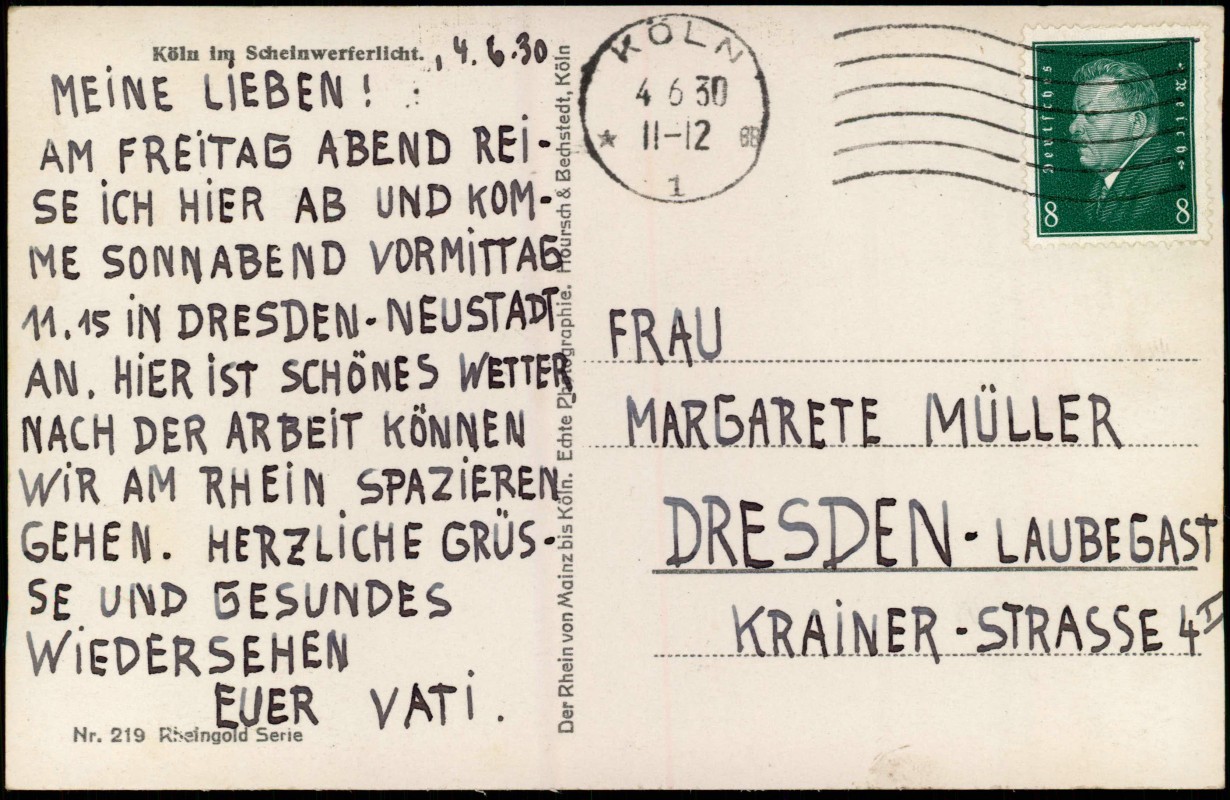 Köln im Scheinwerferlicht. , 4.6.30
MEINE LIEBEN !
AM FREITAG ABEND REI-
SE ICH HIER AB UND KOM-
ME SONNABEND VORMITTAG
11.15 IN DRESDEN-NEUSTADT
AN. HIER IST SCHÖNES WETTER
NACH DER ARBEIT KÖNNEN
WIR AM RHEIN SPAZIEREN
GEHEN. HERZLICHE GRÜS-
SE UND GESUNDES
WIEDERSEHEN
EUER VATI.
Nr. 219 Rheingold Serie
Der Rhein von Mainz bis Köln. Echte Photographie. Hoursch & Bechstedt, Köln
KÖLN
4 6 30
* 11-12 BB
1
Deutsches Reich
8 8
FRAU
MARGARETE MÜLLER
DRESDEN - LAUBEGAST
KRAINER - STRASSE 4 I